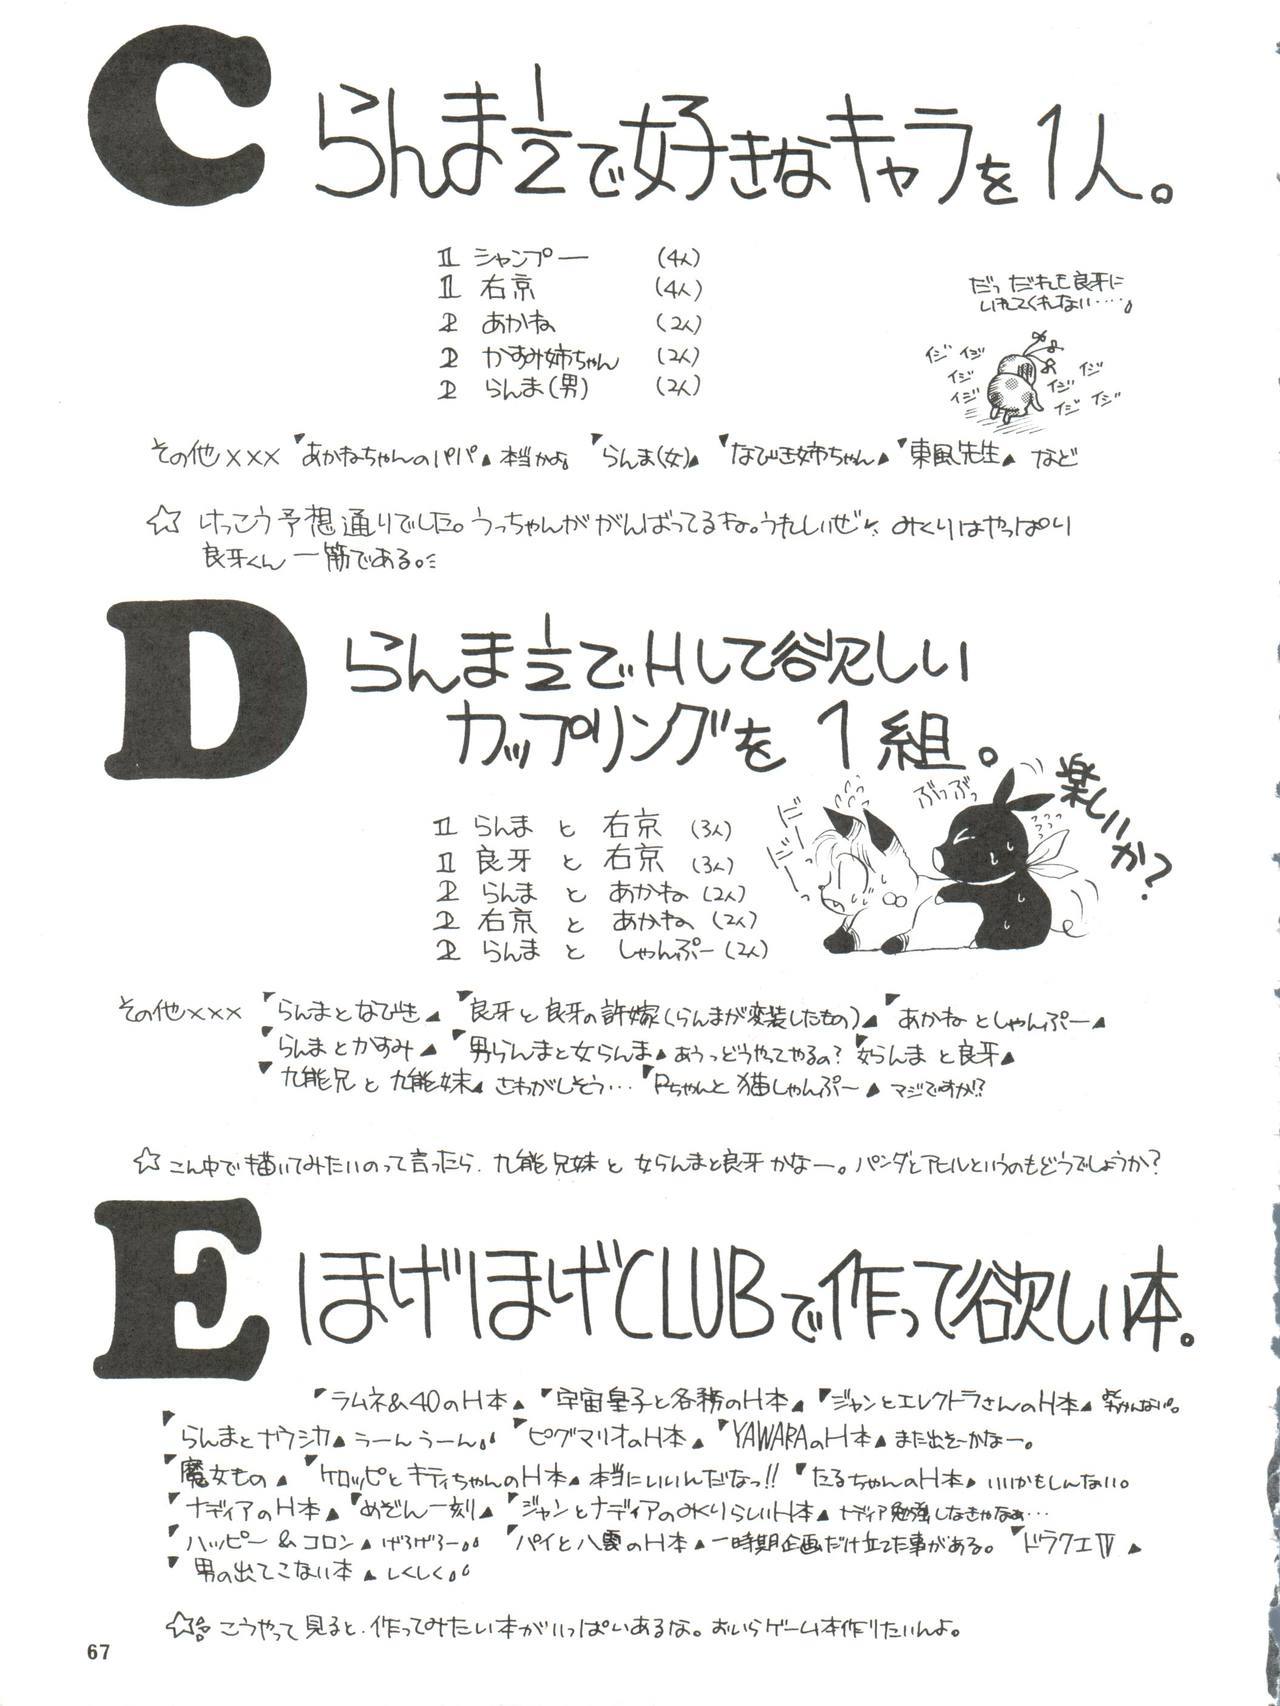 C
らんま1/2で好きなキャラを1人。
1 シャンプー (4人)
1 右京 (4人)
2 あかね (2人)
2 かすみ姉ちゃん (2人)
2 らんま(男) (2人)
だっ だれも良牙に
いれてくれない‥‥。
イジ イジ イジ イジ イジ イジ イジ イジ
その他××× 「あかねちゃんのパパ」本当かよ。「らんま(女)」「なびき姉ちゃん」「東風先生」など
☆ けっこう予想通りでした。うっちゃんががんばってるね。うれしいぜ みくりはやっぱり
良牙くん一筋である。
D
らんま1/2でHして欲しい
カップリングを1組。
ぶっぶっ
楽しいか?
ビーービーーっ
1 らんま と 右京 (3人)
1 良牙 と 右京 (3人)
2 らんま と あかね (2人)
2 右京 と あかね (2人)
2 らんま と しゃんぷー (2人)
その他××× 「らんまとなびき」「良牙と良牙の許嫁(らんまが変装したもの)」「あかねとしゃんぷー」
「らんまとかすみ」「男らんまと女らんま」あうっどうやってやるの?「女らんまと良牙」
「九能兄と九能妹」さわがしそう…「Pちゃんと猫しゃんぷー」マジですか!?
☆ こん中で描いてみたいのって言ったら、九能兄妹と女らんまと良牙かなー。パンダとアヒルというのもどうでしょうか?
E
ほげほげCLUBで作って欲しい本。
「ラムネ&40のH本」「宇宙皇子と各務のH本」「ジャンとエレクトラさんのH本」
「らんまとナウシカ」うーんうーん。「ピグマリオのH本」「YAWARAのH本」また出そーかなー。
「魔女もの」「ケロッピとキティちゃんのH本」本当にいいんだなっ!!「たるちゃんのH本」いいかもしんない。
「ナディアのH本」「めぞん一刻」「ジャンとナディアのみくりらしいH本」ナディア勉強しなきゃなぁ…
「ハッピー&コロン」げろげろー。「パイと八雲のH本」一時期企画だけ立てた事がある。「ドラクエⅣ」
「男の出てこない本」しくしく。
☆ こうやって見ると、作ってみたい本がいっぱいあるな。おいらゲーム本作りたいんよ。
67